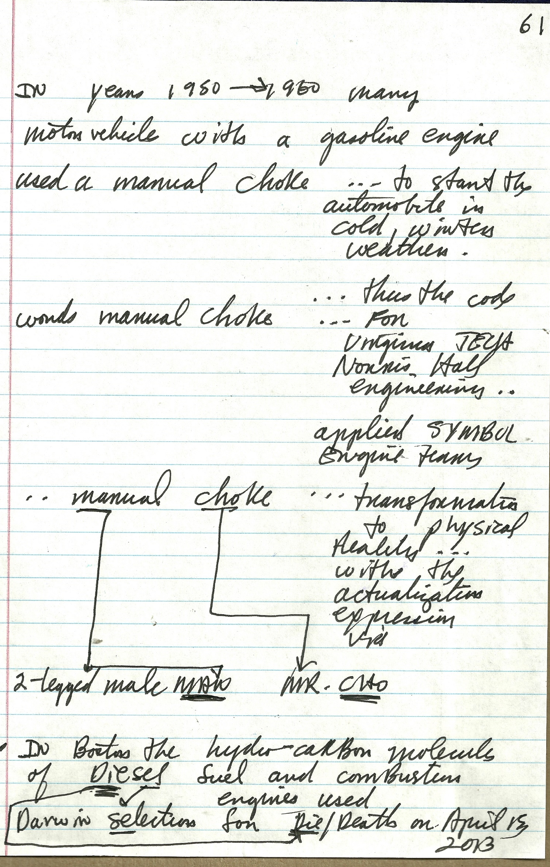 61
IN years 1950 → 1960 many
motor vehicle with a gasoline engine
used a manual choke ... to start the
automobile in
cold, winter
weather.
... thus the code
words manual choke ... For
Virginia TECH
Norris Hall
engineering ..
applied SYMBOL
Engine terms
.. manual choke ... transformation
to physical
Reality ...
with the
actualization
expression
via
2-legged male MAN MR. CHO
IN Boston the hydro-carbon molecule
of Diesel fuel and combustion
engines used
Darwin selection for Die/Death on April 15,
2013